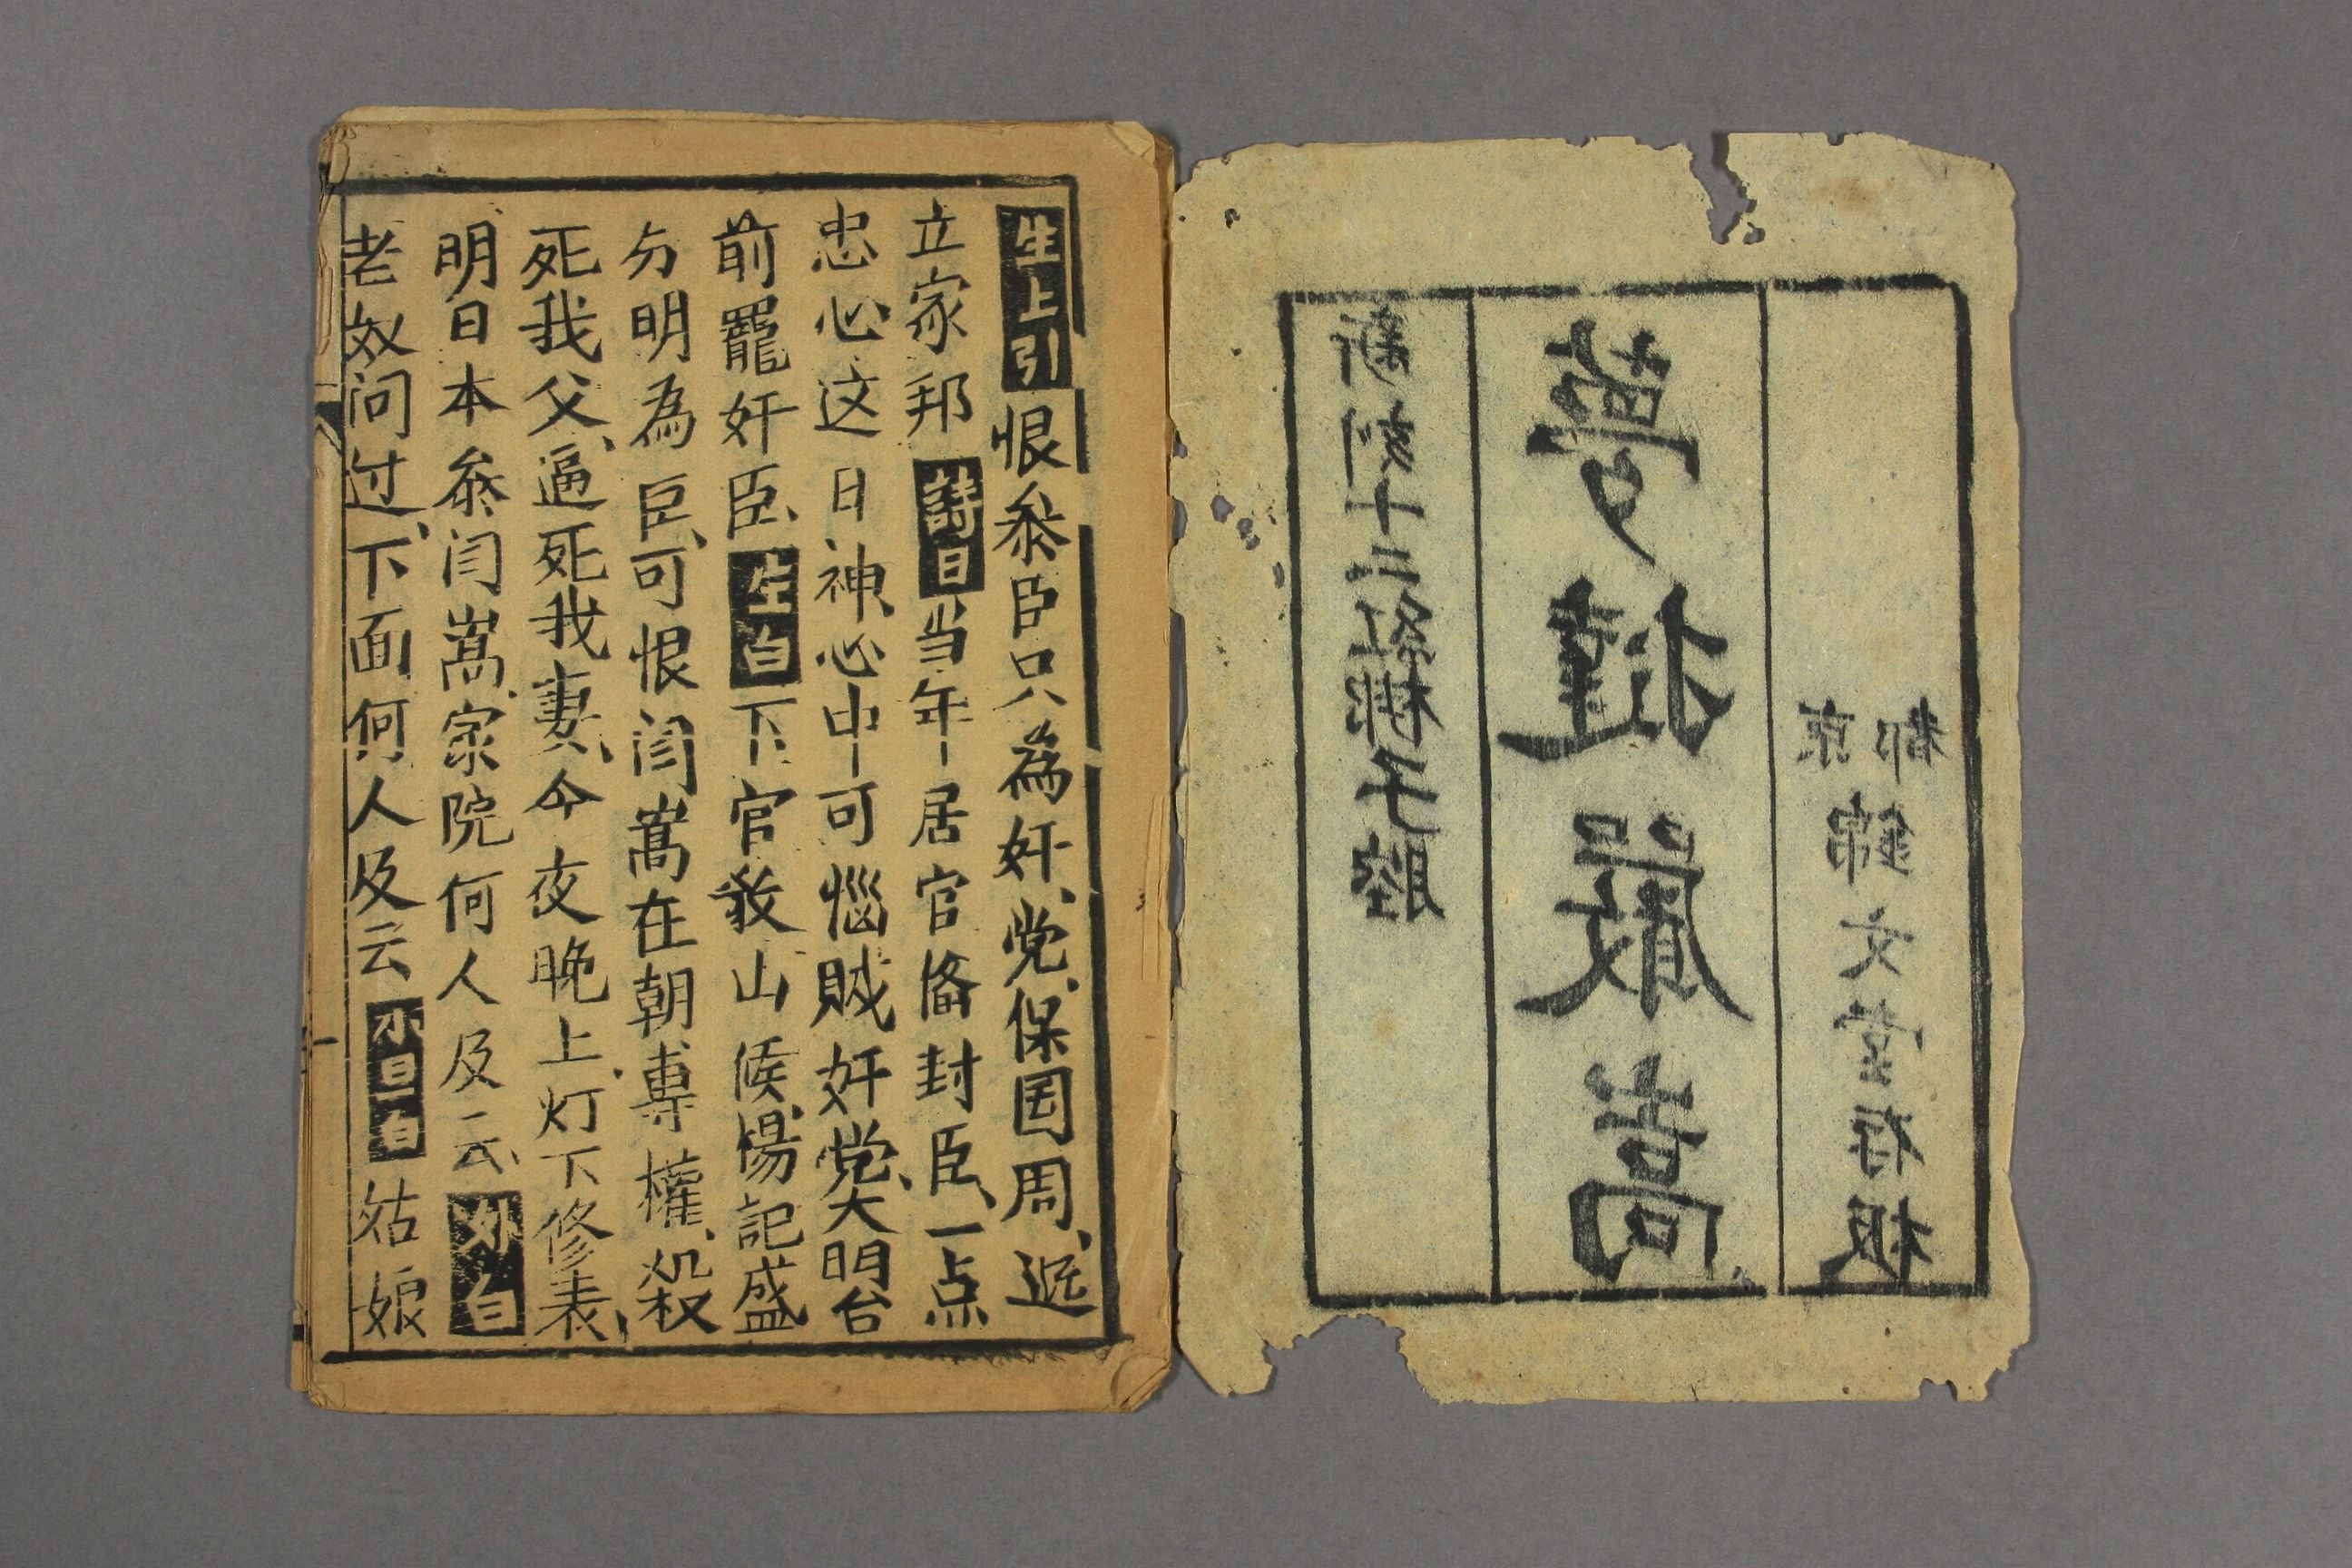 新刻十二紅梆子腔
夢撻嚴嵩
京都錦文堂存板
生上引恨叅臣只為奸党保国周远
立家邦詩曰当年居官俻封臣一点
忠心这日神心中可惱賊奸党大明台
前罷奸臣生白下官敖山候惕記盛
分明為臣可恨闫嵩在朝專權殺
死我父逼死我妻今夜晚上灯下修表
明日本叅闫嵩家院何人及云白
老奴问过下面何人及云小旦白姑娘